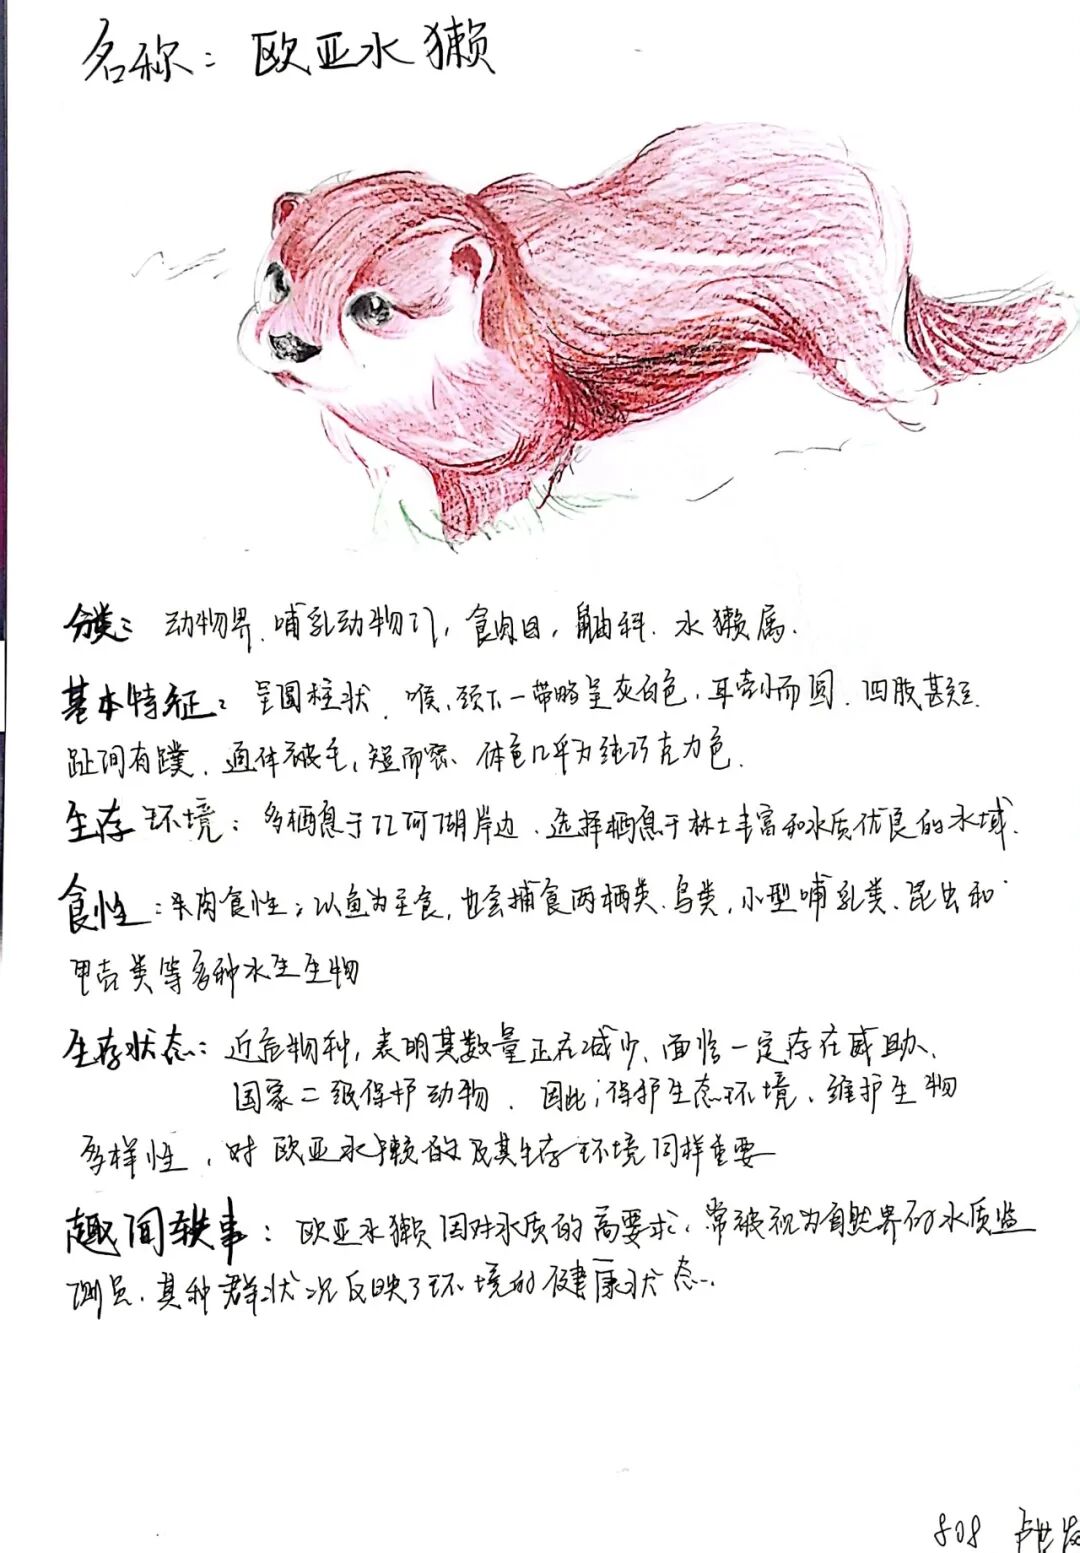 名称：欧亚水獭
分类：动物界、哺乳动物门，食肉目，鼬科、水獭属.
基本特征：呈圆柱状、喉、颈下一带略呈灰白色，耳壳小而圆、四肢甚短、
趾间有蹼、通体被毛，短而密、体色几乎为纯巧克力色.
生存环境：多栖息于江河湖岸边、选择栖息于林土丰富和水质优良的水域.
食性：半肉食性；以鱼为主食，也会捕食两栖类、鸟类，小型哺乳类、昆虫和
甲壳类等多种水生生物
生存状态：近危物种，表明其数量正在减少、面临一定存在威胁、
国家二级保护动物、因此；保护生态环境、维护生物
多样性，对欧亚水獭的及其生存环境同样重要
趣闻轶事：欧亚水獭因对水质的高要求，常被视为自然界的水质监
测员、其种群状况反映了环境的健康状态.
808 卢世